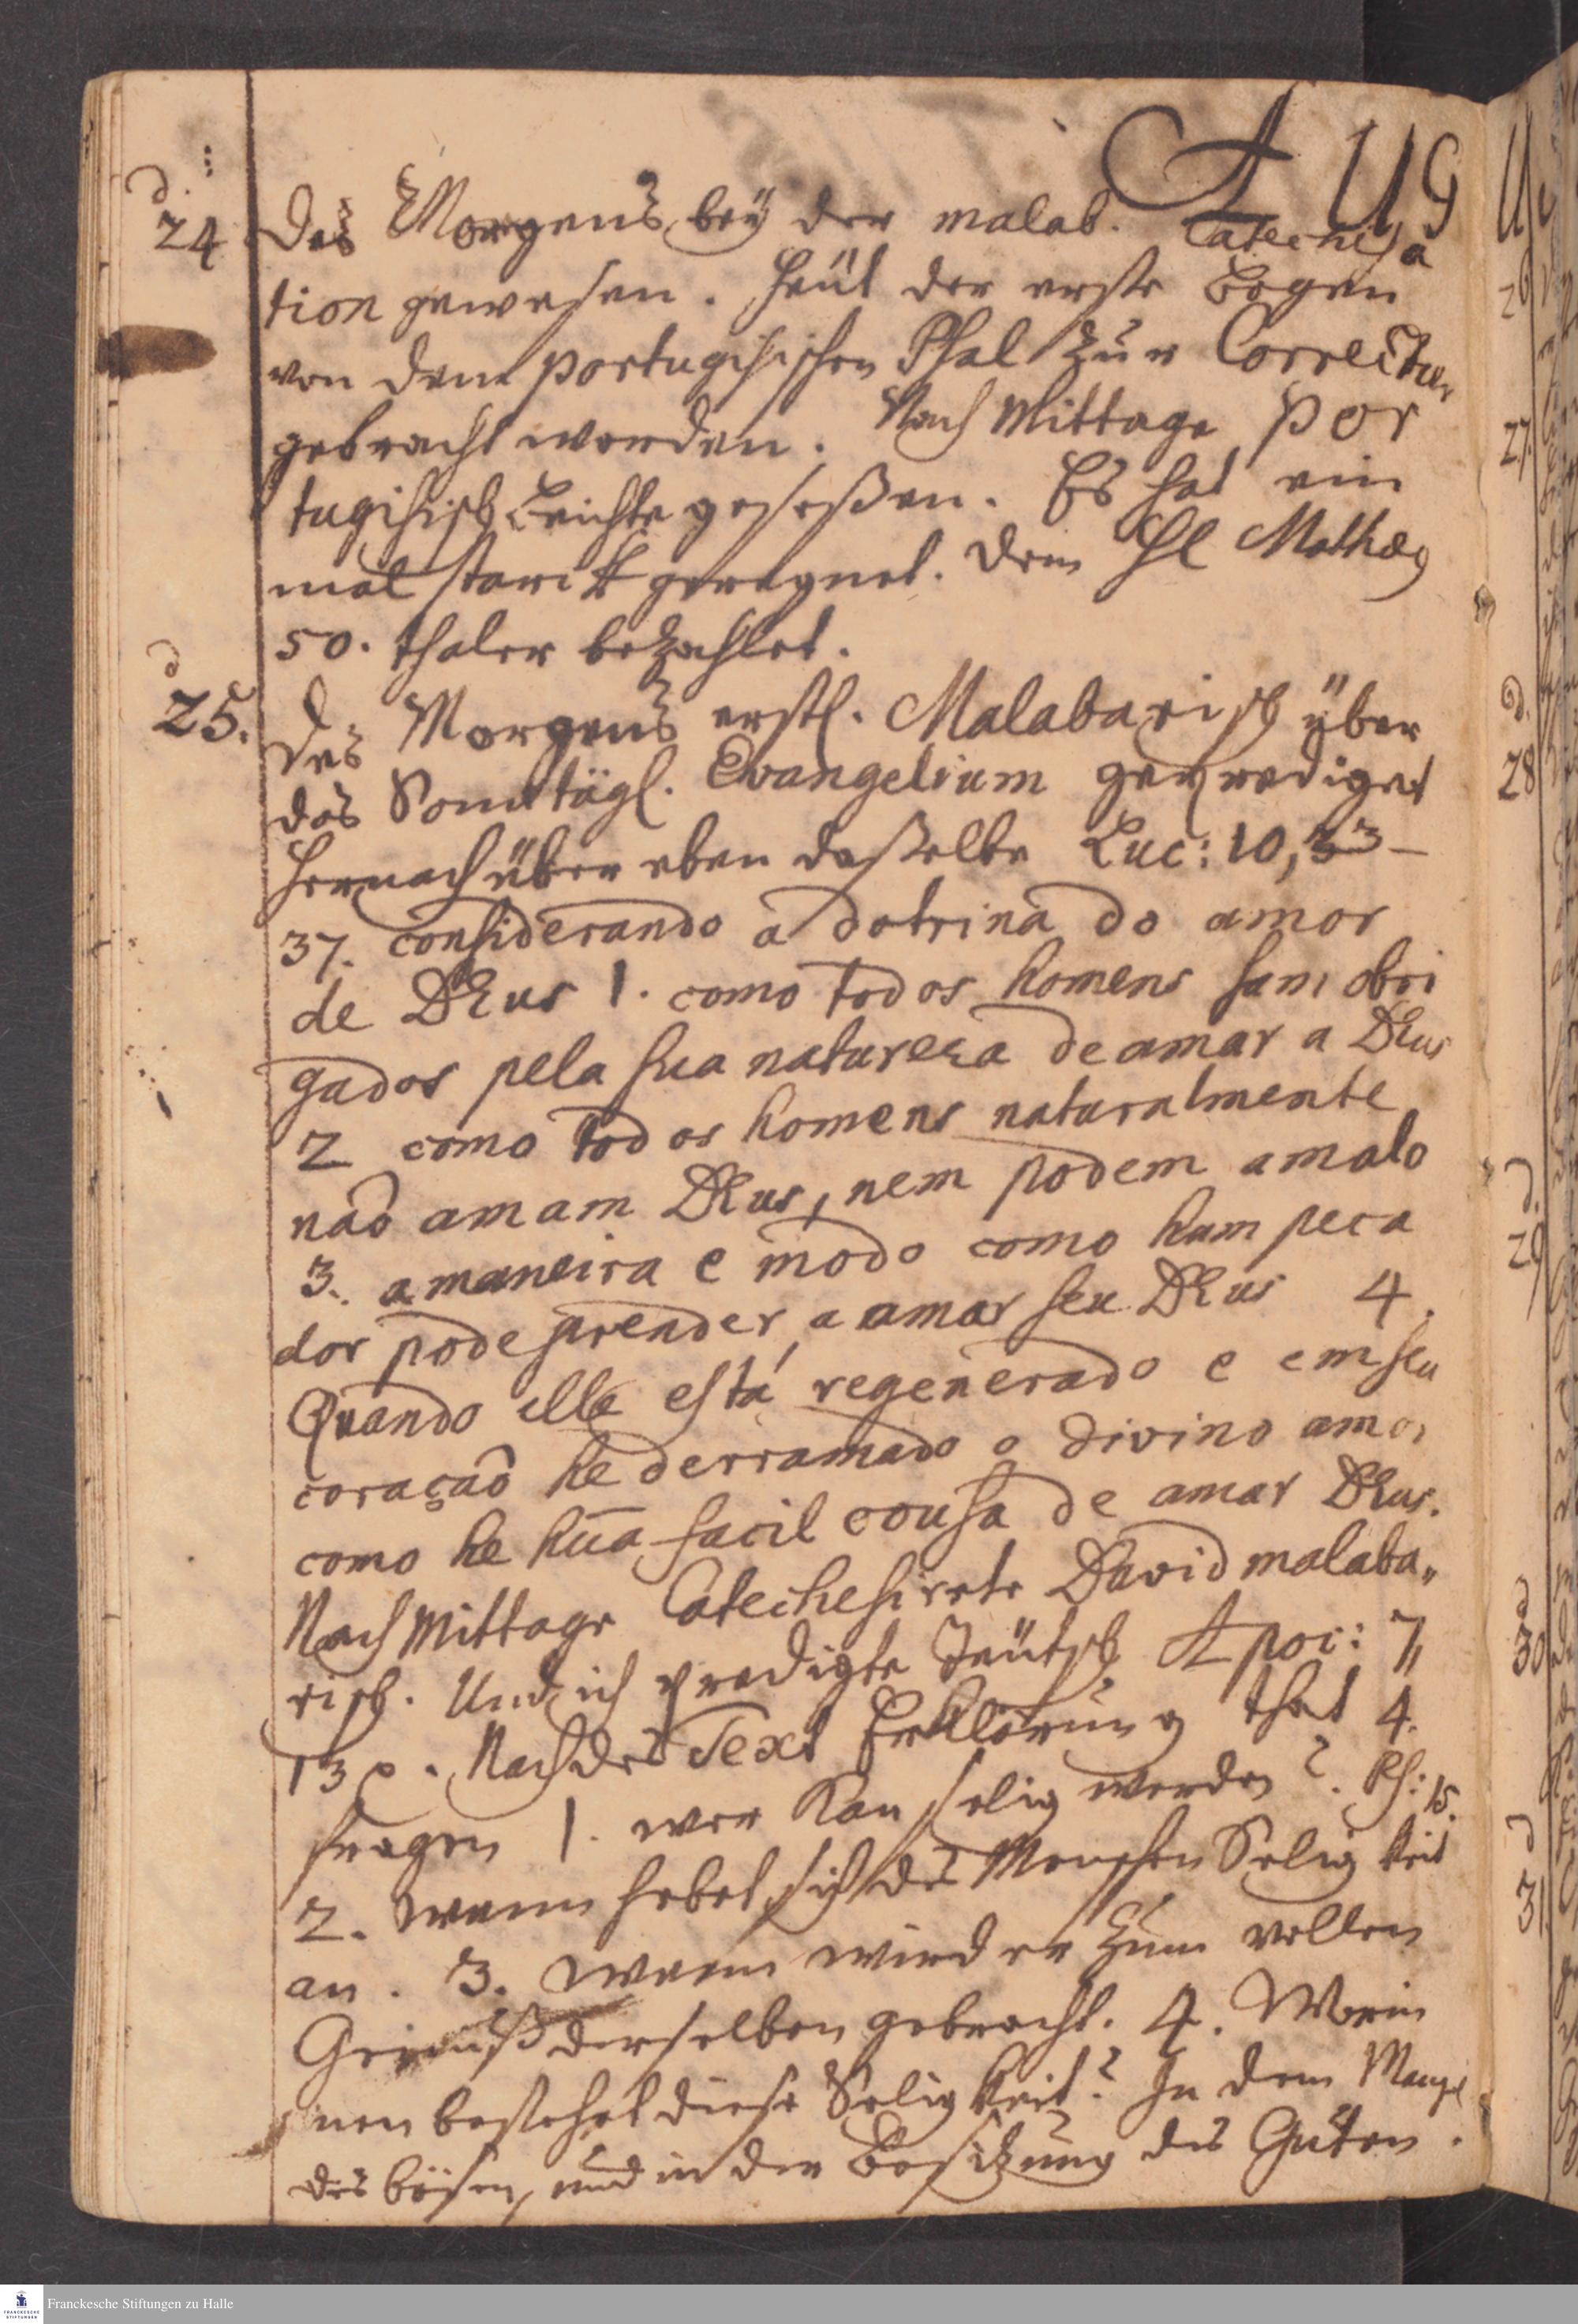 A U G
d.
24 Des Morgens bey der malab. Catechisa
tion gewesen. Heut der erste Bogen
von dem portugisischen Psal zur Correctur
gebracht worden. Nach Mittage por
tugisisch Beichte geseßen. Es hat ein
mal starck geregnet. Dem
50. thaler bezahlet.
d
25. Des Morgens erstl. Malabarisch über
das Sonntägl. Evangelium geprediget
hernach über eben daßelbe Luc: 10, 33-
37. considerando a dotrina do amor
de DEus 1. como todos homens sam obri
gados pela sua natureza de amar a DEus
2 como todos homens naturalmente
naõ amam DEus, nem podem amalo
3. a maneira e modo como hum peca
dor pode aprender a amar seu DEus 4.
Quando elle está regenerado e em seu
coraçaõ he derramado o divino amor
como he hũa facil cousa de amar DEus.
Nach Mittage Catechesirete David malaba„
risch. Und ich predigte Teütsch Apoc: 7,
13 p. Nach des Text Erklärung that 4.
fragen 1. wer kan selig werden? Ps: 15.
2. Wenn hebet sich des Menschen Seligkeit
an. 3. Wenn wird er zum vollen
Genuß derselben gebracht. 4. Worin
nen bestehet diese Seligkeit? In dem Mangel
des bösen, und in der Besitzung des Guten.
U
26
27.
d.
28
d.
29
d
30
d
31
Franckesche Stiftungen zu Halle
FRANCKESCHE
STIFTUNGEN